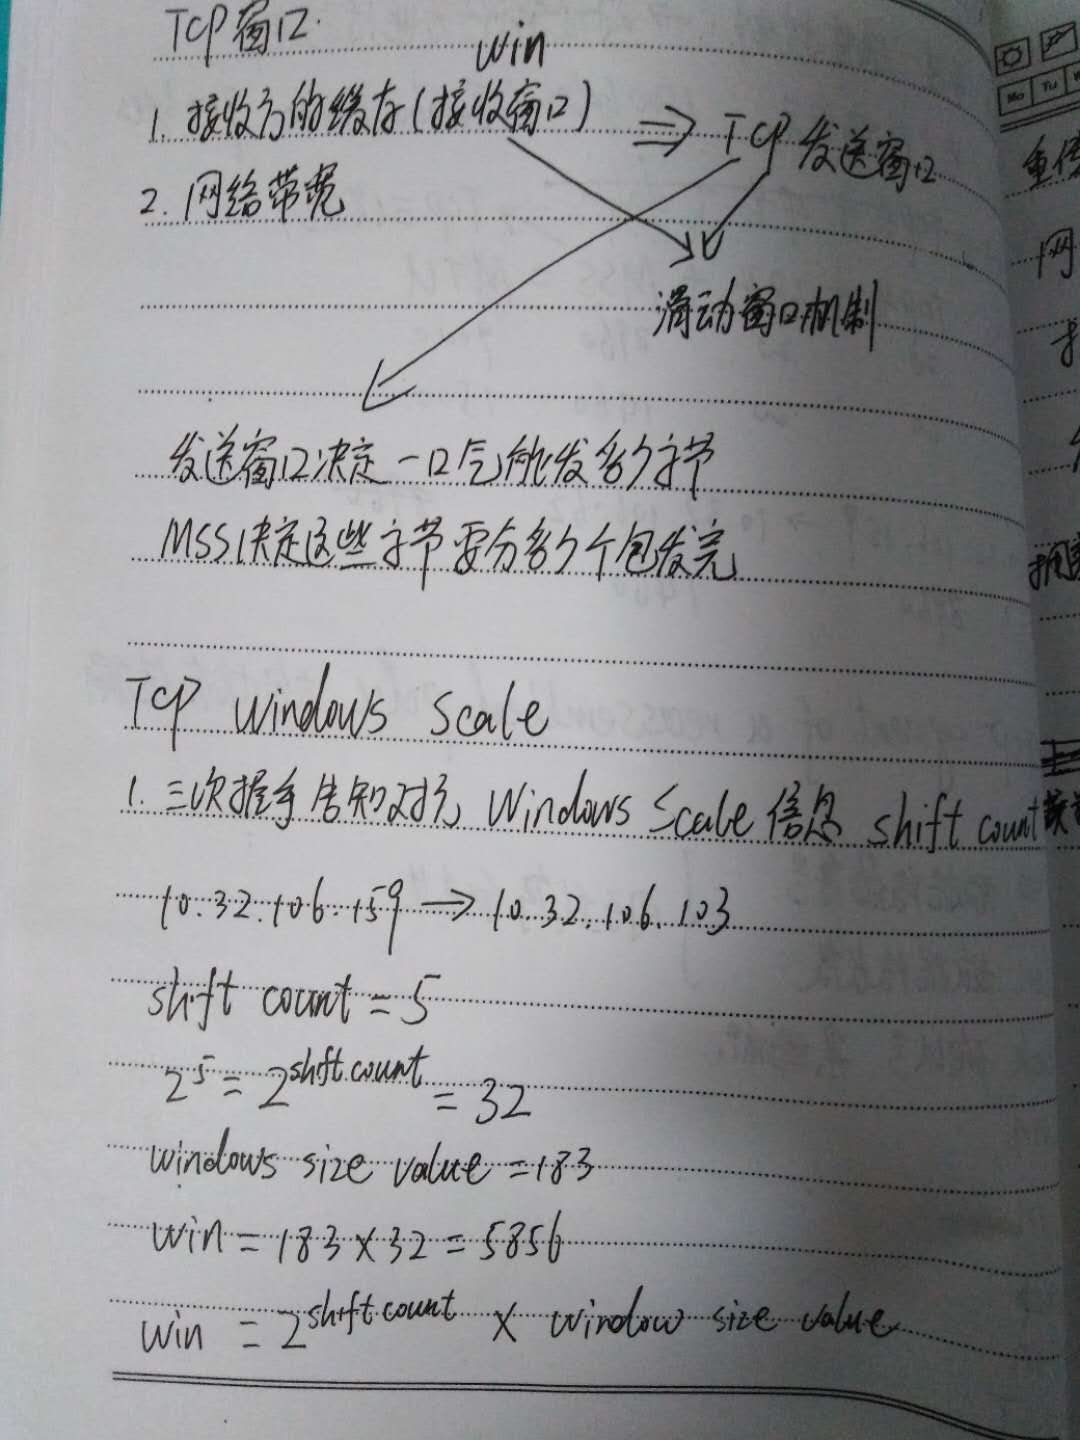 TCP窗口
win
1. 接收方的缓存(接收窗口) ⇒ TCP发送窗口
2. 网络带宽
滑动窗口机制
发送窗口决定一口气能发多少字节
MSS决定这些字节要分多少个包发完
TCP windows scale
1. 三次握手告知对方 Windows Scale信息 shift count
10.32.106.159 → 10.32.106.103
shift count = 5
2^5 = 2^shift count = 32
windows size value = 183
win = 183 × 32 = 5856
win = 2^shift count × window size value
Mo Tu
重传
网